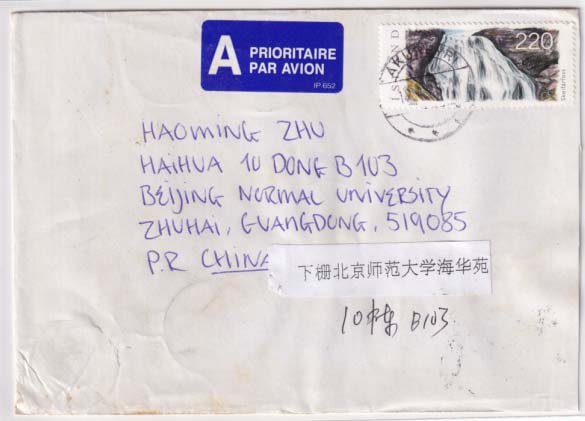 A PRIORITAIRE
PAR AVION
IP 652
ÍSLAND
220
HAOMING ZHU
HAIHUA 10 DONG B103
BEIJING NORMAL UNIVERSITY
ZHUHAI, GUANGDONG, 519085
P.R CHINA
下栅北京师范大学海华苑
10栋 B103